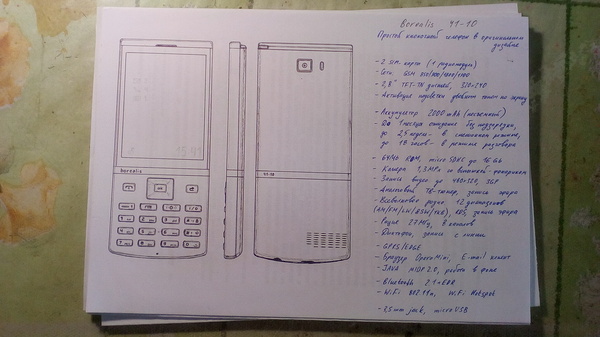 Borealis 91-10
Простой кнопочный телефон в оригинальном
дизайне
- 2 sim. карты (1 радиомодуль)
- Сети GSM 850/900/1800/1900
- 2,8" TFT-TN дисплей, 320×240
- Активация подсветки двойным тапом по экрану
- Аккумулятор 2000 mAh (несъёмный)
- До 1 месяца ожидания без подзарядки,
до 2,5 недель - в смешанном режиме,
до 18 часов - в режиме разговора
- 64 Mb ROM, micro SDHC до 16 Gb
- Камера 1,3 MPx со вспышкой-фонариком
- Запись видео до 480×320, 3GP
- Аналоговый ТВ-тюнер, запись эфира
- Всеволновое радио 12 диапазонов
RDS, запись эфира
- Рация 27 МГц, 8 каналов
- Диктофон, запись с линии
- GPRS/EDGE
- Браузер Opera Mini, E-mail клиент
- JAVA MIDP 2.0, работа в фоне
- Bluetooth 2.1+EDR
- WiFi 802.11n, WiFi Hotspot
- 3,5 mm jack, microUSB
borealis
91-10